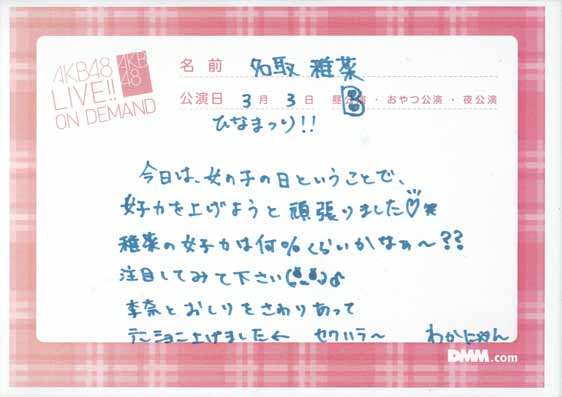 AKB48
LIVE!!
ON DEMAND
AKB
48
名前 名取 稚菜
公演日 3月3日 昼公演・おやつ公演・夜公演
ひなまつり!!
今日は、女の子の日ということで、
女子力を上げようと頑張りました♡
稚菜の女子力は何%くらいかなぁ〜??
注目してみて下さい♪
李奈とおしりをさわりあって
テンション上げました← セクハラ〜 わかにゃん
DMM.com